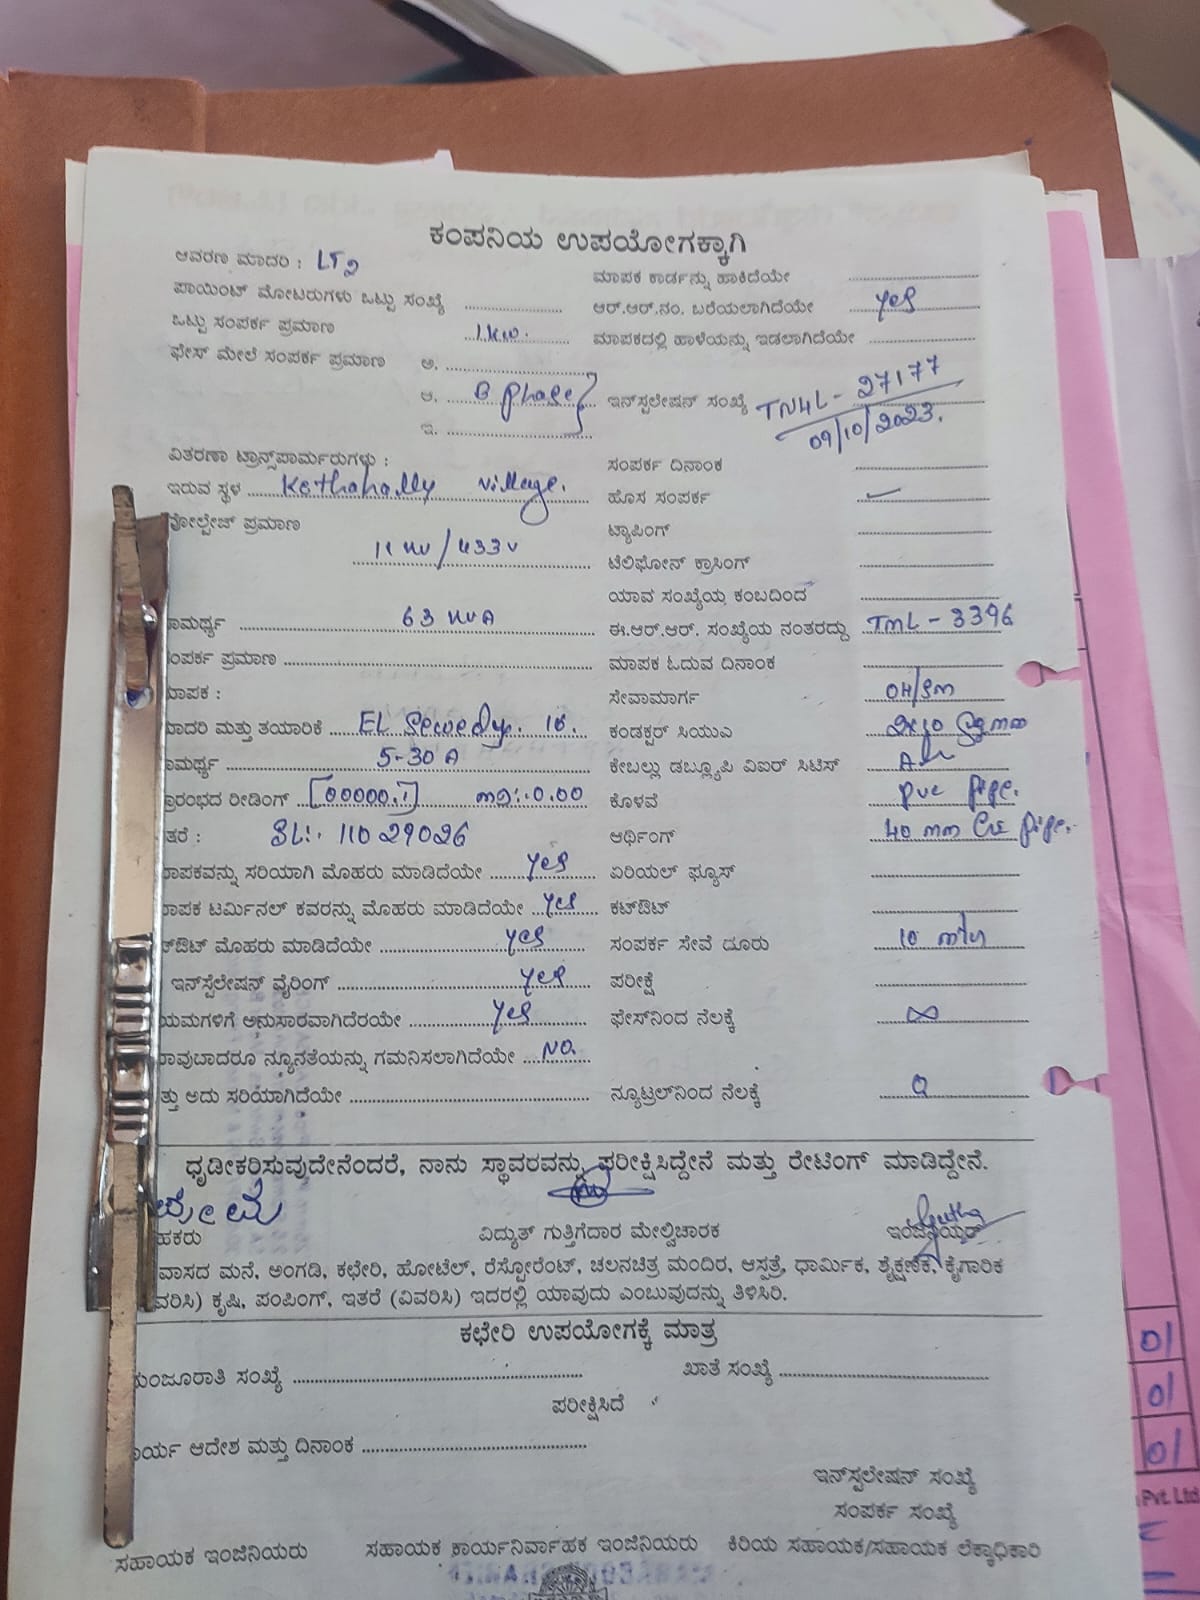 ಕಂಪನಿಯ ಉಪಯೋಗಕ್ಕಾಗಿ
ಆವರಣ ಮಾದರಿ : LT2
ಮಾಪಕ ಕಾರ್ಡನ್ನು ಹಾಕಿದೆಯೇ
ಪಾಯಿಂಟ್ ಮೋಟರುಗಳು ಒಟ್ಟು ಸಂಖ್ಯೆ
ಆರ್.ಆರ್.ನಂ. ಬರೆಯಲಾಗಿದೆಯೇ yes
ಒಟ್ಟು ಸಂಪರ್ಕ ಪ್ರಮಾಣ 1kw.
ಮಾಪಕದಲ್ಲಿ ಹಾಳೆಯನ್ನು ಇಡಲಾಗಿದೆಯೇ
ಫೇಸ್ ಮೇಲೆ ಸಂಪರ್ಕ ಪ್ರಮಾಣ ಅ.
ಆ. B phase
ಇನ್‌ಸ್ಪಲೇಷನ್ ಸಂಖ್ಯೆ TN4L- 27177
09/10/2023.
ಇ.
ವಿತರಣಾ ಟ್ರಾನ್ಸ್‌ಪಾರ್ಮರುಗಳು :
ಸಂಪರ್ಕ ದಿನಾಂಕ
ಇರುವ ಸ್ಥಳ Kothahally village.
ಹೊಸ ಸಂಪರ್ಕ
ವೋಲ್ಟೇಜ್ ಪ್ರಮಾಣ
ಟ್ಯಾಪಿಂಗ್
11 kv / 433 v
ಟೆಲಿಫೋನ್ ಕ್ರಾಸಿಂಗ್
ಯಾವ ಸಂಖ್ಯೆಯ ಕಂಬದಿಂದ
ಾಮರ್ಥ್ಯ 63 kvA
ಈ.ಆರ್.ಆರ್. ಸಂಖ್ಯೆಯ ನಂತರದ್ದು TML- 3396
ಂಪರ್ಕ ಪ್ರಮಾಣ
ಮಾಪಕ ಓದುವ ದಿನಾಂಕ
ಾಪಕ :
ಸೇವಾಮಾರ್ಗ OH/SM
ಾದರಿ ಮತ್ತು ತಯಾರಿಕೆ EL Sewedy. 10.
ಕಂಡಕ್ಟರ್ ಸಿಯುಎ 2x10 Sqmm
ಾಮರ್ಥ್ಯ 5-30 A
ಕೇಬಲ್ಲು ಡಬ್ಲ್ಯೂಪಿ ವಿಐರ್ ಸಿಟಿಸ್
್ರಾರಂಭದ ರೀಡಿಂಗ್ [00000.1] MD:- 0.00
ಕೊಳವೆ pvc pipe.
ತರೆ : SL:- 11029026
ಆರ್ಥಿಂಗ್ 40 mm GI pipe.
ಾಪಕವನ್ನು ಸರಿಯಾಗಿ ಮೊಹರು ಮಾಡಿದೆಯೇ yes
ಏರಿಯಲ್ ಫ್ಯೂಸ್
ಾಪಕ ಟರ್ಮಿನಲ್ ಕವರನ್ನು ಮೊಹರು ಮಾಡಿದೆಯೇ yes
ಕಟ್‌ಔಟ್
ಟ್‌ಔಟ್ ಮೊಹರು ಮಾಡಿದೆಯೇ yes
ಸಂಪರ್ಕ ಸೇವೆ ದೂರು 10 mts
ಇನ್‌ಸ್ಪೆಲೇಷನ್ ವೈರಿಂಗ್ yes
ಪರೀಕ್ಷೆ
ಯಮಗಳಿಗೆ ಅನುಸಾರವಾಗಿದೆರಯೇ yes
ಫೇಸ್‌ನಿಂದ ನೆಲಕ್ಕೆ ∞
ಾವುಬಾದರೂ ನ್ಯೂನತೆಯನ್ನು ಗಮನಿಸಲಾಗಿದೆಯೇ NO.
ತ್ತು ಅದು ಸರಿಯಾಗಿದೆಯೇ
ನ್ಯೂಟ್ರಲ್‌ನಿಂದ ನೆಲಕ್ಕೆ 0
ಧೃಡೀಕರಿಸುವುದೇನೆಂದರೆ, ನಾನು ಸ್ಥಾವರವನ್ನು ಪರೀಕ್ಷಿಸಿದ್ದೇನೆ ಮತ್ತು ರೇಟಿಂಗ್ ಮಾಡಿದ್ದೇನೆ.
ಹಕರು
ವಿದ್ಯುತ್ ಗುತ್ತಿಗೆದಾರ ಮೇಲ್ವಿಚಾರಕ
ಇಂಜಿನಿಯರ್
ವಾಸದ ಮನೆ, ಅಂಗಡಿ, ಕಛೇರಿ, ಹೋಟೆಲ್, ರೆಸ್ಟೋರೆಂಟ್, ಚಲನಚಿತ್ರ ಮಂದಿರ, ಆಸ್ಪತ್ರೆ, ಧಾರ್ಮಿಕ, ಶೈಕ್ಷಣಿಕ, ಕೈಗಾರಿಕ
ವರಿಸಿ) ಕೃಷಿ, ಪಂಪಿಂಗ್, ಇತರೆ (ವಿವರಿಸಿ) ಇದರಲ್ಲಿ ಯಾವುದು ಎಂಬುವುದನ್ನು ತಿಳಿಸಿರಿ.
ಕಛೇರಿ ಉಪಯೋಗಕ್ಕೆ ಮಾತ್ರ
ಮಂಜೂರಾತಿ ಸಂಖ್ಯೆ
ಖಾತೆ ಸಂಖ್ಯೆ
ಪರೀಕ್ಷಿಸಿದೆ
ಾರ್ಯ ಆದೇಶ ಮತ್ತು ದಿನಾಂಕ
ಇನ್‌ಸ್ಪಲೇಷನ್ ಸಂಖ್ಯೆ
ಸಂಪರ್ಕ ಸಂಖ್ಯೆ
ಸಹಾಯಕ ಇಂಜಿನಿಯರು
ಸಹಾಯಕ ಕಾರ್ಯನಿರ್ವಾಹಕ ಇಂಜಿನಿಯರು
ಕಿರಿಯ ಸಹಾಯಕ/ಸಹಾಯಕ ಲೆಕ್ಕಾಧಿಕಾರಿ
Pvt. Ltd